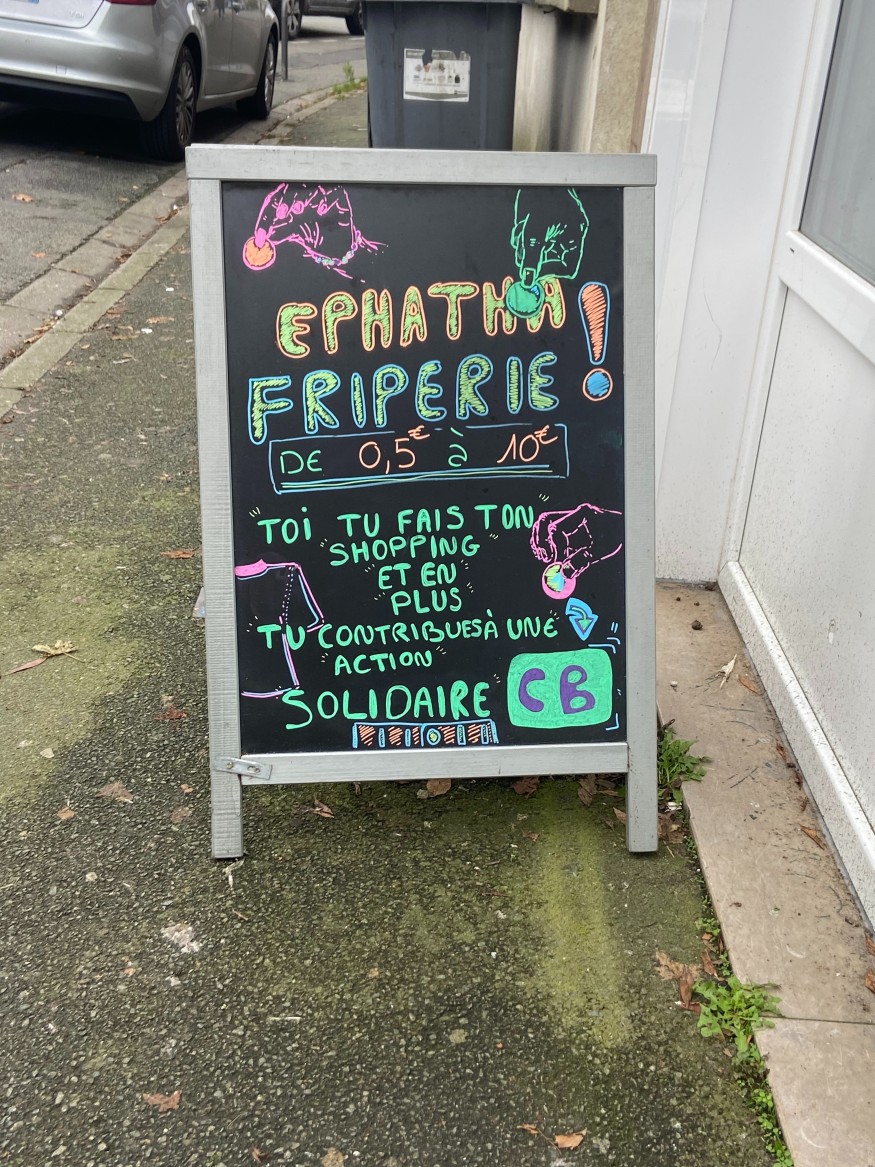 EPHATHA !
FRIPERIE
DE 0,5€ à 10€
TOi TU FAIS TON
SHOPPING
ET EN
PLUS
TU CONTRIBUES À UNE
ACTION
SOLIDAIRE
CB